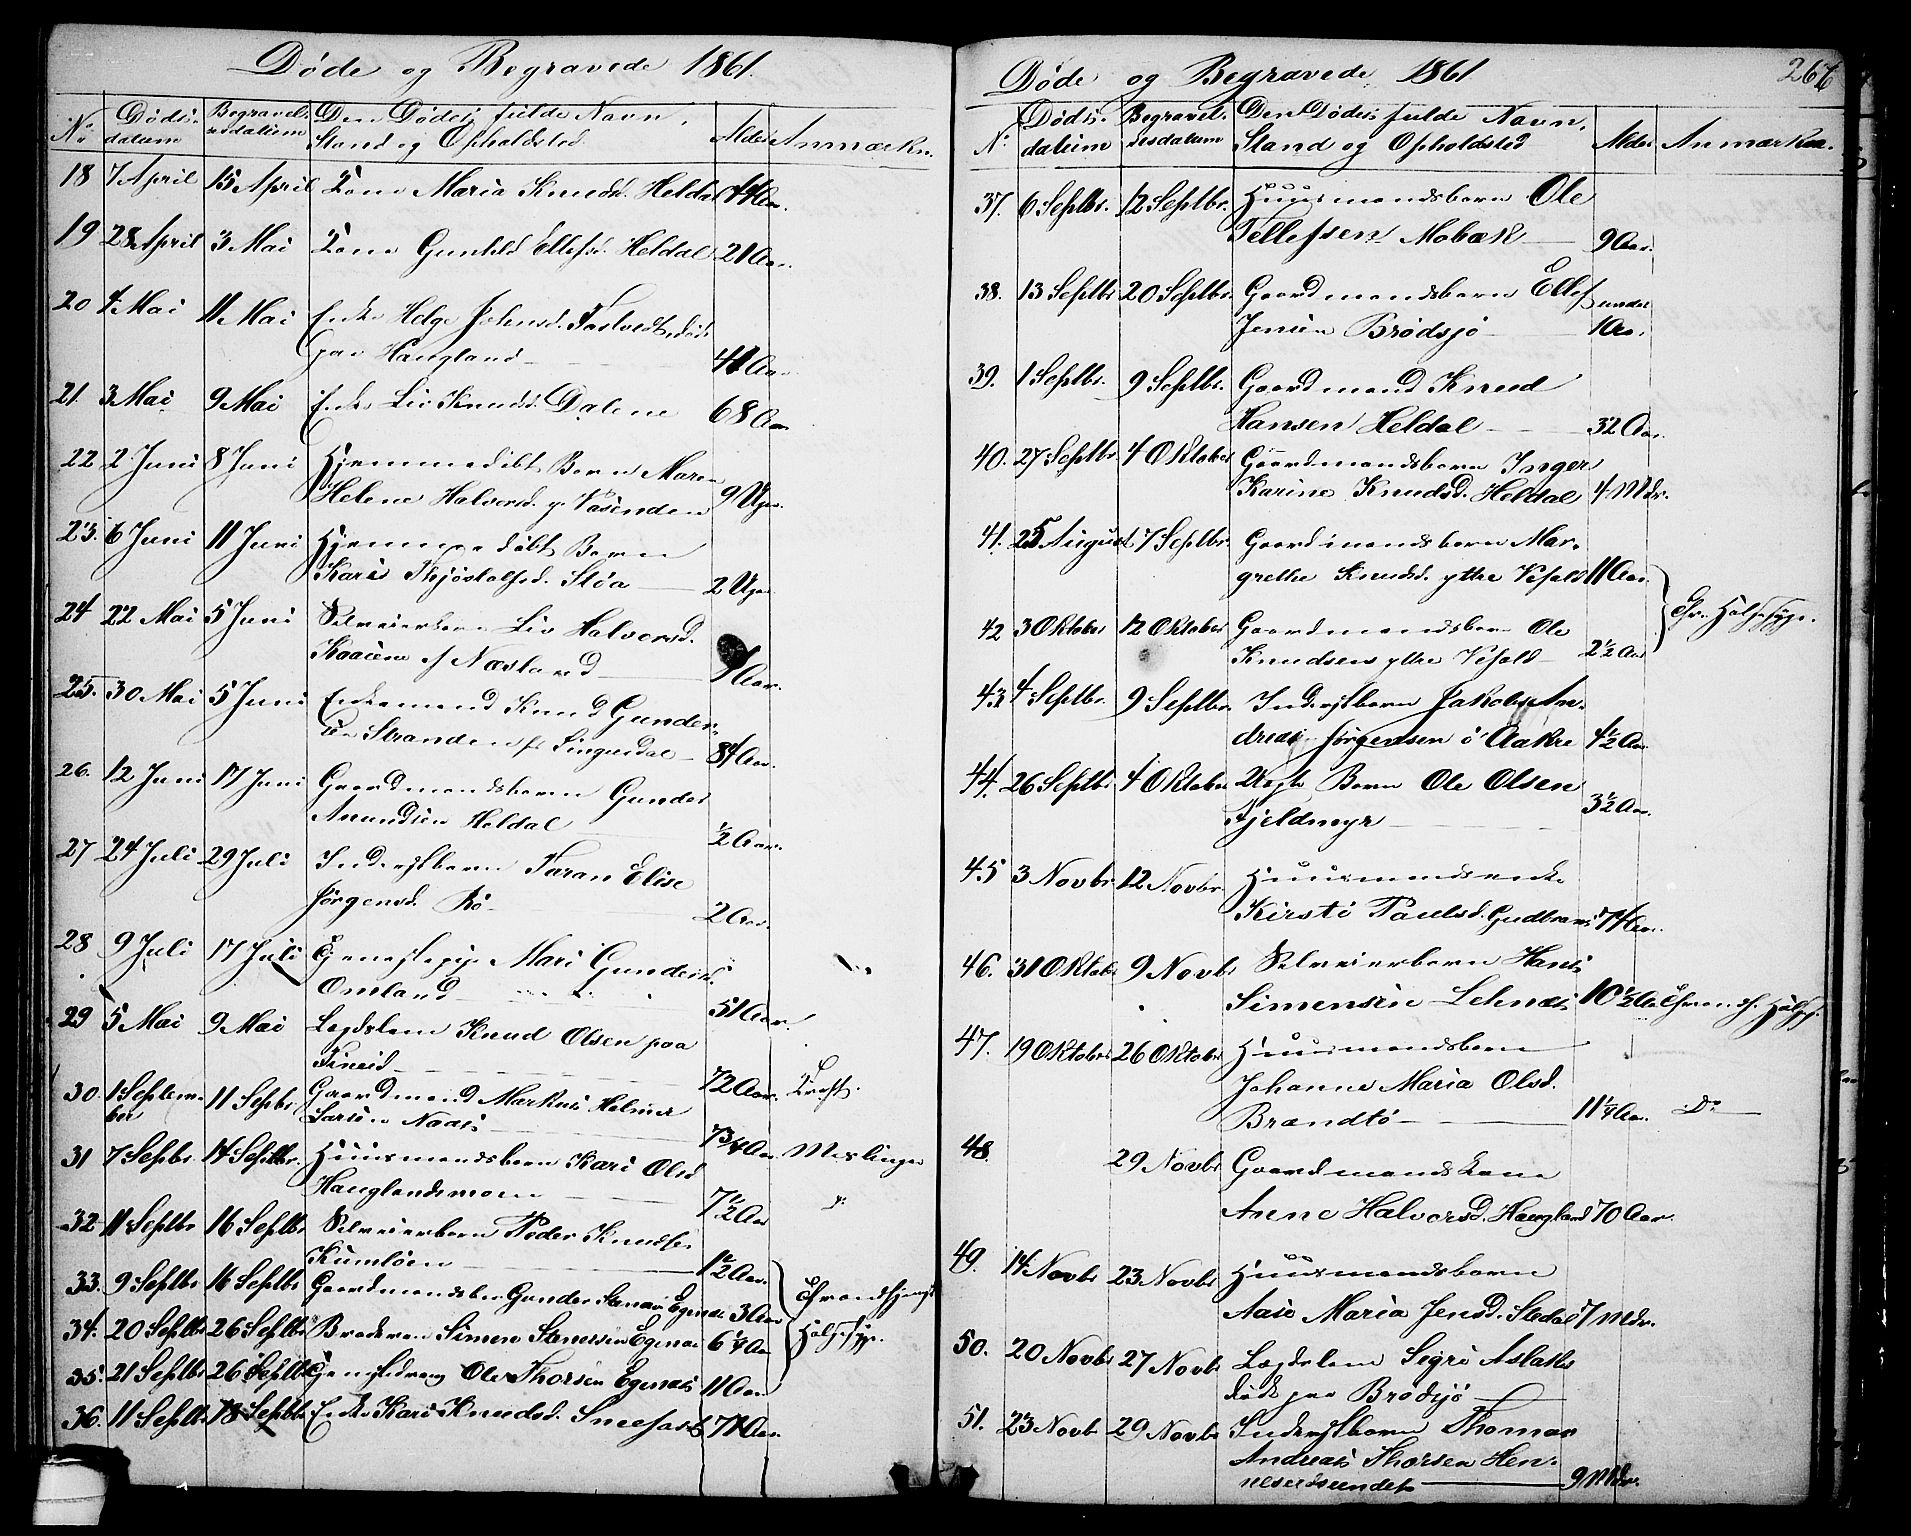 Døde og Begravede 1861.
No Døds-datum Begravel-sesdatum Den Dødes fulde Navn, Stand og Opholdsted Alder Anmærkn.
18 7 April 15 April Kone Maria Knudsd. Heldal 44 Aar.
19 28 April 3 Mai Kone Gunhild Ellefsd. Heldal 21 Aar.
20 4 Mai 11 Mai Enke Helge Johnsd. død
paa Haugland Aar
21. 3 Mai 9 Mai Enke Liv Knudsd. Dalene 68 Aar
22 2 Juni 8 Juni Hjemmedøbt Barn Maren
Helene Halvorsd. Vasenden 9 Uger
23. 6 Juni 11 Juni Hjemmedøbt Barn
Kari Thjostolfsd. Støa 2 Uger
24 22 Mai 5 Juni Selveierbarn Liv Halvorsd.
Næsland Aar.
25. 30 Mai 5 Juni Enkemand Knud Gunder-
sen Stranden 84 Aar.
26. 12 Juni 17 Juni Gaardmandsbarn Gunder
Amundsen Heldal 1/2 Aar.
27 24 Juli 29 Juli Inderstbarn Taran Elise
Jørgensd. Bö 2 Aar.
28 9 Juli 17 Juli Mari Gundersd.
Omland 51 Aar.
29 5 Mai 9 Mai Lægdslem Knud Olsen paa
72 Aar. Kræft.
30. 1 Septem-ber 11 Sepbr. Gaardmand Markus Helmer
Larsen Naas 73/4 Aar
31 7 Sepbr. 14 Septbr. Huusmandsbarn Kari Olsd. Meslinger
Hauglandsmoen 7 1/2 Aar
32 11 Septbr 16 Septbr Selveierbarn Peder Knudsen
Kumløen 1 1/2 Aar.
33. 9 Septbr 16 Septbr Gaardmandsbn Gunder Egenæs 3 Aar
34. 20 Septbr 26 Septbr Broderen Simen Egenæs 6 1/4 Aar Halssyge.
35. 21 Septbr 26 Septbr Ole Thorsen Egenæs 11 Aar
36. 11 Septbr 18 Septbr Enke Kari Knudsd. 71 Aar.
Døde og Begravede 1861
266
No. Døds-datum Begravel-sesdatum Den Dødes fulde Navn, Stand og Opholdsted Alder Anmærkn.
37. 6 Septbr. 12 Septbr. Huusmandsbarn Ole
Tellefsen Mobæk 9 Aar.
38. 13 Septbr 20 Septbr. Gaardmandsbarn Ellef under
Jensen Brødsjø 1 Aar.
39. 1 Septbr. 9 Septbr. Gaardmand Knud
Hansen Heldal 32 Aar.
40. 27 Septbr 4 Oktober Gaardmandsbarn Inger
Karine Knudsd. Heldal 4 Mdr.
41. 25 August 7 Septbr. Gaardmandsbarn Mar-
grethe Knudsd. ytre Vefald 11 Aar.
Halssyge.
42 3 Oktober 12 Oktober Gaardmandsbarn Ole
Knudsen ytre Vefald 2 1/2 Aar
43 4 Septbr. 9 Septbr. Inderstbarn Jakob An-
dreas Jørgensen i Aakre 4 1/2 Aar.
44. 26 Septbr 4 Oktober Uægte Barn Ole Olsen
Fjeldmyr 3 1/2 Aar.
45 3 Novbr 12 Novbr. Huusmandsenke
Kirsti Paulsd. 74 Aar.
46. 31 Oktober 9 Novbr Selveierbarn Hans
Simensen Lehnæs 10 1/2 Aar
47. 19 Oktober 26 Oktober Huusmandsbarn
Johanne Maria Olsd.
Brandtø 11 1/4 Aar. Do
48. 29 Novbr Gaardmandskone
Anne Halvorsd. Haugland 70 Aar.
49. 14 Novbr 23 Novbr Huusmandsbarn
Aase Maria Jensd. 7 Mdr.
50. 20 Novbr 27 Novbr Lægdslem Segri Aslaks
død paa Brødsjø
51. 23 Novb 29 Novbr Inderstbarn Thomas
Andreas Thorsen Hen-
neseidsundet 9 Mdr.